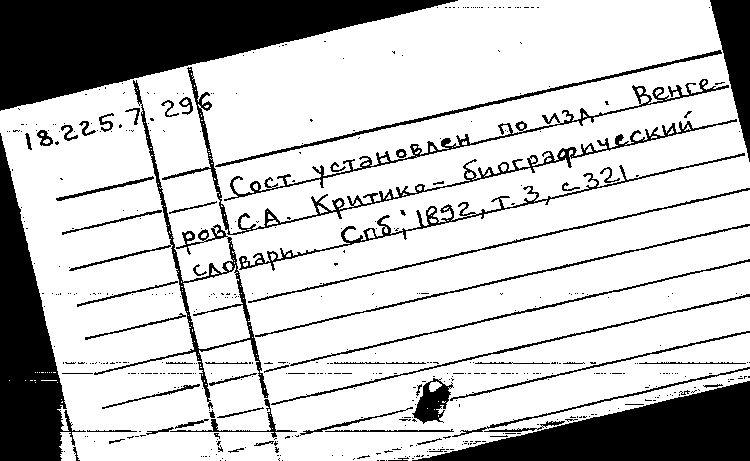 18.225.7.296
Сост. установлен по изд.: Венге-
ров С.А. Критико-биографический
словарь... Спб., 1892, т. 3, с. 321.